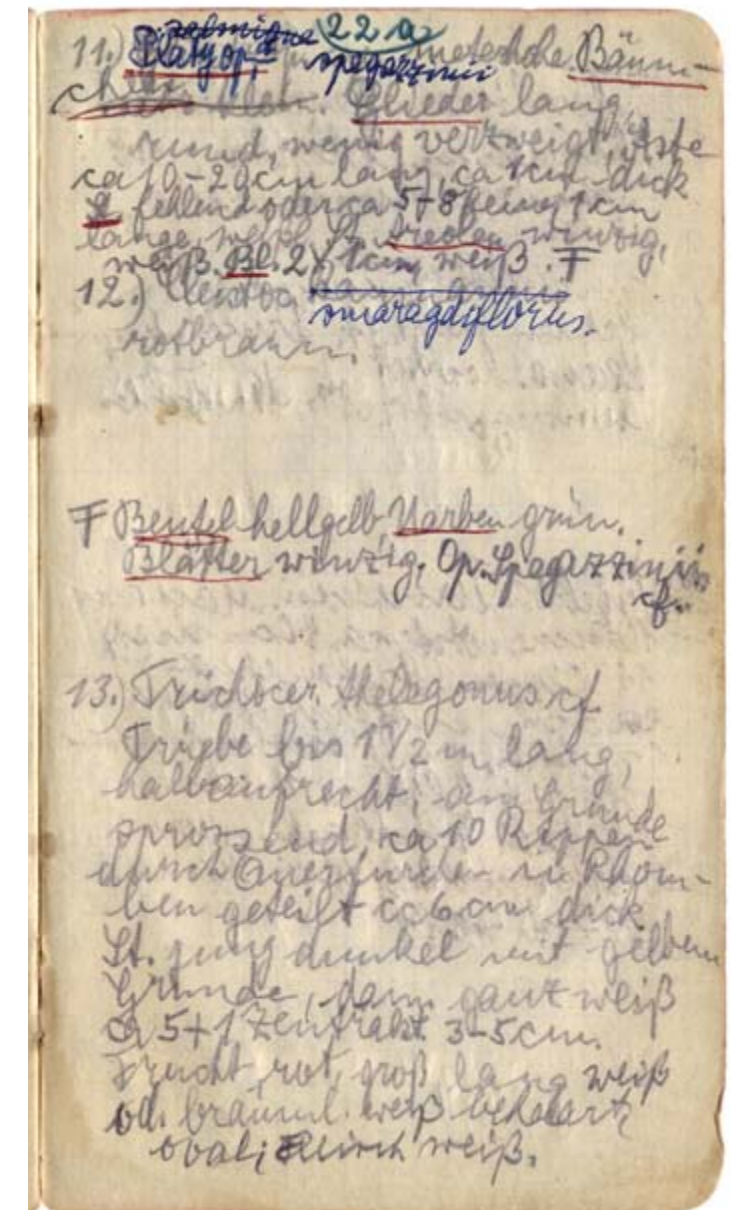 salmiana 22a
11.) Platyop. spegazzinii meterhohe Bäum-
chen. Glieder lang,
rund, wenig verzweigt, Äste
ca 10-20 cm lang, ca 1 cm dick
St. fehlend oder ca 5-8 feine, 1 cm
lange, weiße. Areolen winzig,
weiß. Bl. 2 x 1 cm, weiß. F
12.) Cleistoc.
smaragdiflorus.
rotbraun.
F Beutel hellgelb, Narben grün.
Blätter winzig. Op. Spegazzinii
cf.
13.) Trichocer. thelegonus cf
Triebe bis 1 1/2 m lang,
halbaufrecht, am Grunde
sprossend, ca 10 Rippen
durch Querfurchen in Rhom-
ben geteilt ca 6 cm dick
St. jung dunkel mit gelbem
Grunde, dann ganz weiß
ca 5+1 Zentralst. 3-5 cm.
Frucht rot, groß, lang weiß
od. bräunl. weiß behaart,
oval; weiß.